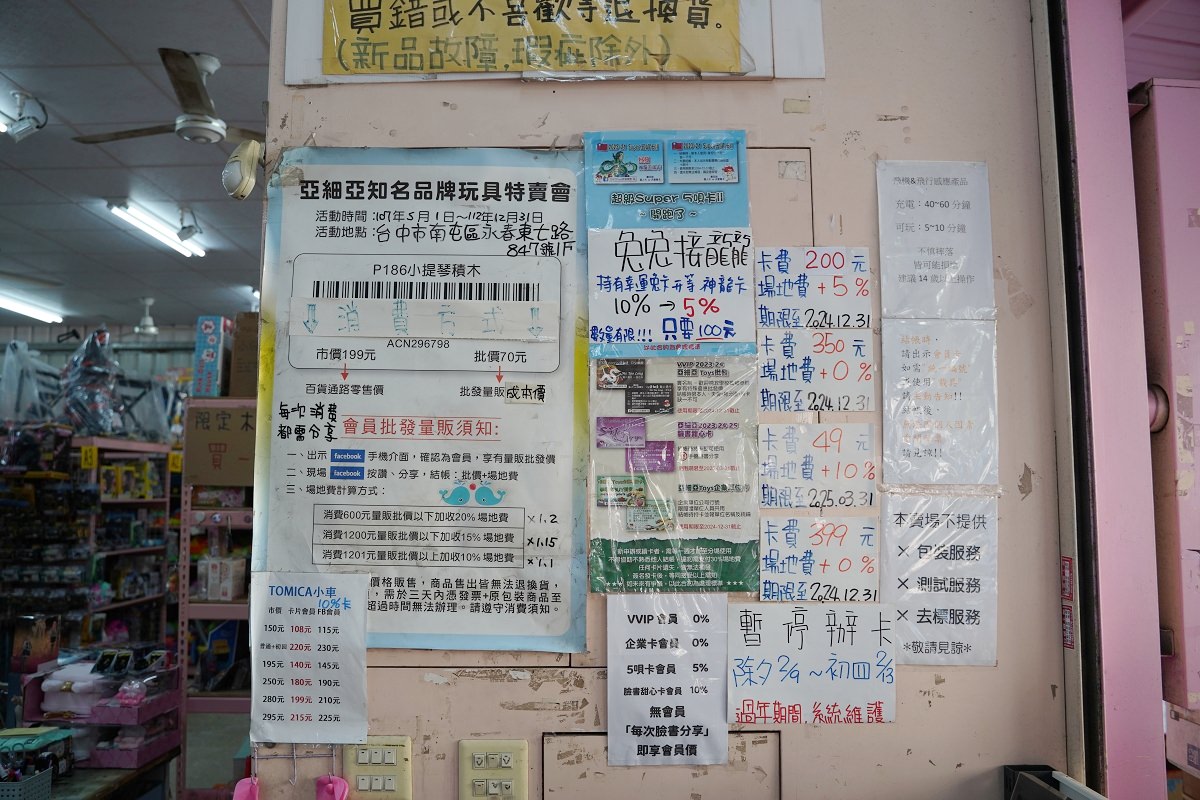 買錯或不喜歡等退換貨。
(新品故障,瑕疵除外)
亞細亞知名品牌玩具特賣會
活動時間:107年5月1日～112年12月31日
活動地點:台中市南屯區永春東七路
847號1F
P186小提琴積木
↓消費方式↓
ACN296798
市價199元 批價70元
百貨通路零售價 批發量販成本價
每次消費
都需分享
會員批發量販須知:
一、出示 facebook 手機介面，確認為會員，享有量販批發價
二、現場 facebook 按讚、分享，結帳：批價+場地費
三、場地費計算方式：
消費600元量販批價以下加收20% 場地費 ×1.2
消費1200元量販批價以下加收15% 場地費 ×1.15
消費1201元量販批價以上加收10% 場地費 ×1.1
價格販售，商品售出皆無法退換貨，
，需於三天內憑發票+原包裝商品至
超過時間無法辦理。請遵守消費須知。
TOMICA小車
10%卡
市價 卡片會員 FB會員
150元 108元 115元
普通+初回 220元 230元
195元 140元 145元
250元 180元 190元
280元 199元 210元
295元 215元 225元
超級Super 5唄卡II
～開跑了～
兔兔接龍龍
持有幸運兔卡升等 神龍卡
10% → 5%
數量有限!!! 只要100元
VVIP 2023-24
亞細亞 Toys批卡
亞細亞2023-24-25
臉書甜心卡
亞細亞Toys企業
卡費 200 元
場地費 +5%
期限至2024.12.31
卡費 350 元
場地費 +0%
期限至2024.12.31
卡費 49 元
場地費 +10%
期限至2025.03.31
卡費 399 元
場地費 +0%
期限至2024.12.31
VVIP 會員 0%
企業卡會員 0%
5唄卡會員 5%
臉書甜心卡會員 10%
無會員
「每次臉書分享」
即享會員價
暫停辦卡
除夕 2/9～初四 2/13
過年期間,系統維護
飛機&飛行感應產品
充電：40~60 分鐘
可玩：5~10 分鐘
不慎摔落
皆可能損
建議 14 歲以上操作
結帳時，
請出示會員卡
如需"統一編號"
或使用"載具"
請主動告知!!
結帳後，
請見諒!!
本賣場不提供
× 包裝服務
× 測試服務
× 去標服務
*敬請見諒*
限定木
買一
A3